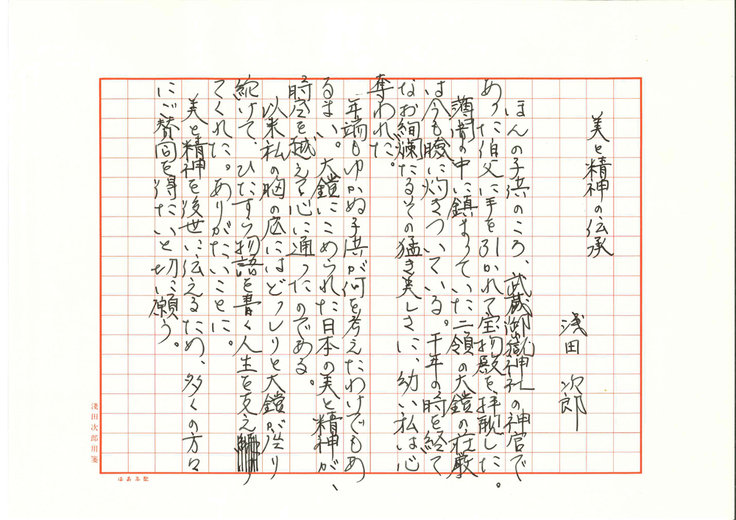 美と精神の伝承
浅田 次郎
ほんの子供のころ、武蔵御嶽神社の神官で
あった伯父に手を引かれて宝物殿を拝観した。
薄闇の中に鎮まっていた二領の大鎧の荘厳
は今も瞼に灼きついている。千年の時を経て
なお絢爛たるその猛き美しさに、幼い私は心
奪われた。
年端もゆかぬ子供が何を考えたわけでもあ
るまい。大鎧にこめられた日本の美と精神が、
時空を越えて心に通ったのである。
以来私の胸の底にはどっしりと大鎧が座り
続けて、ひたすら物語を書く人生を支え
てくれた。ありがたいことに。
美と精神を後世に伝えるため、多くの方々
にご賛同を得たいと切に願う。
淺田次郎用箋